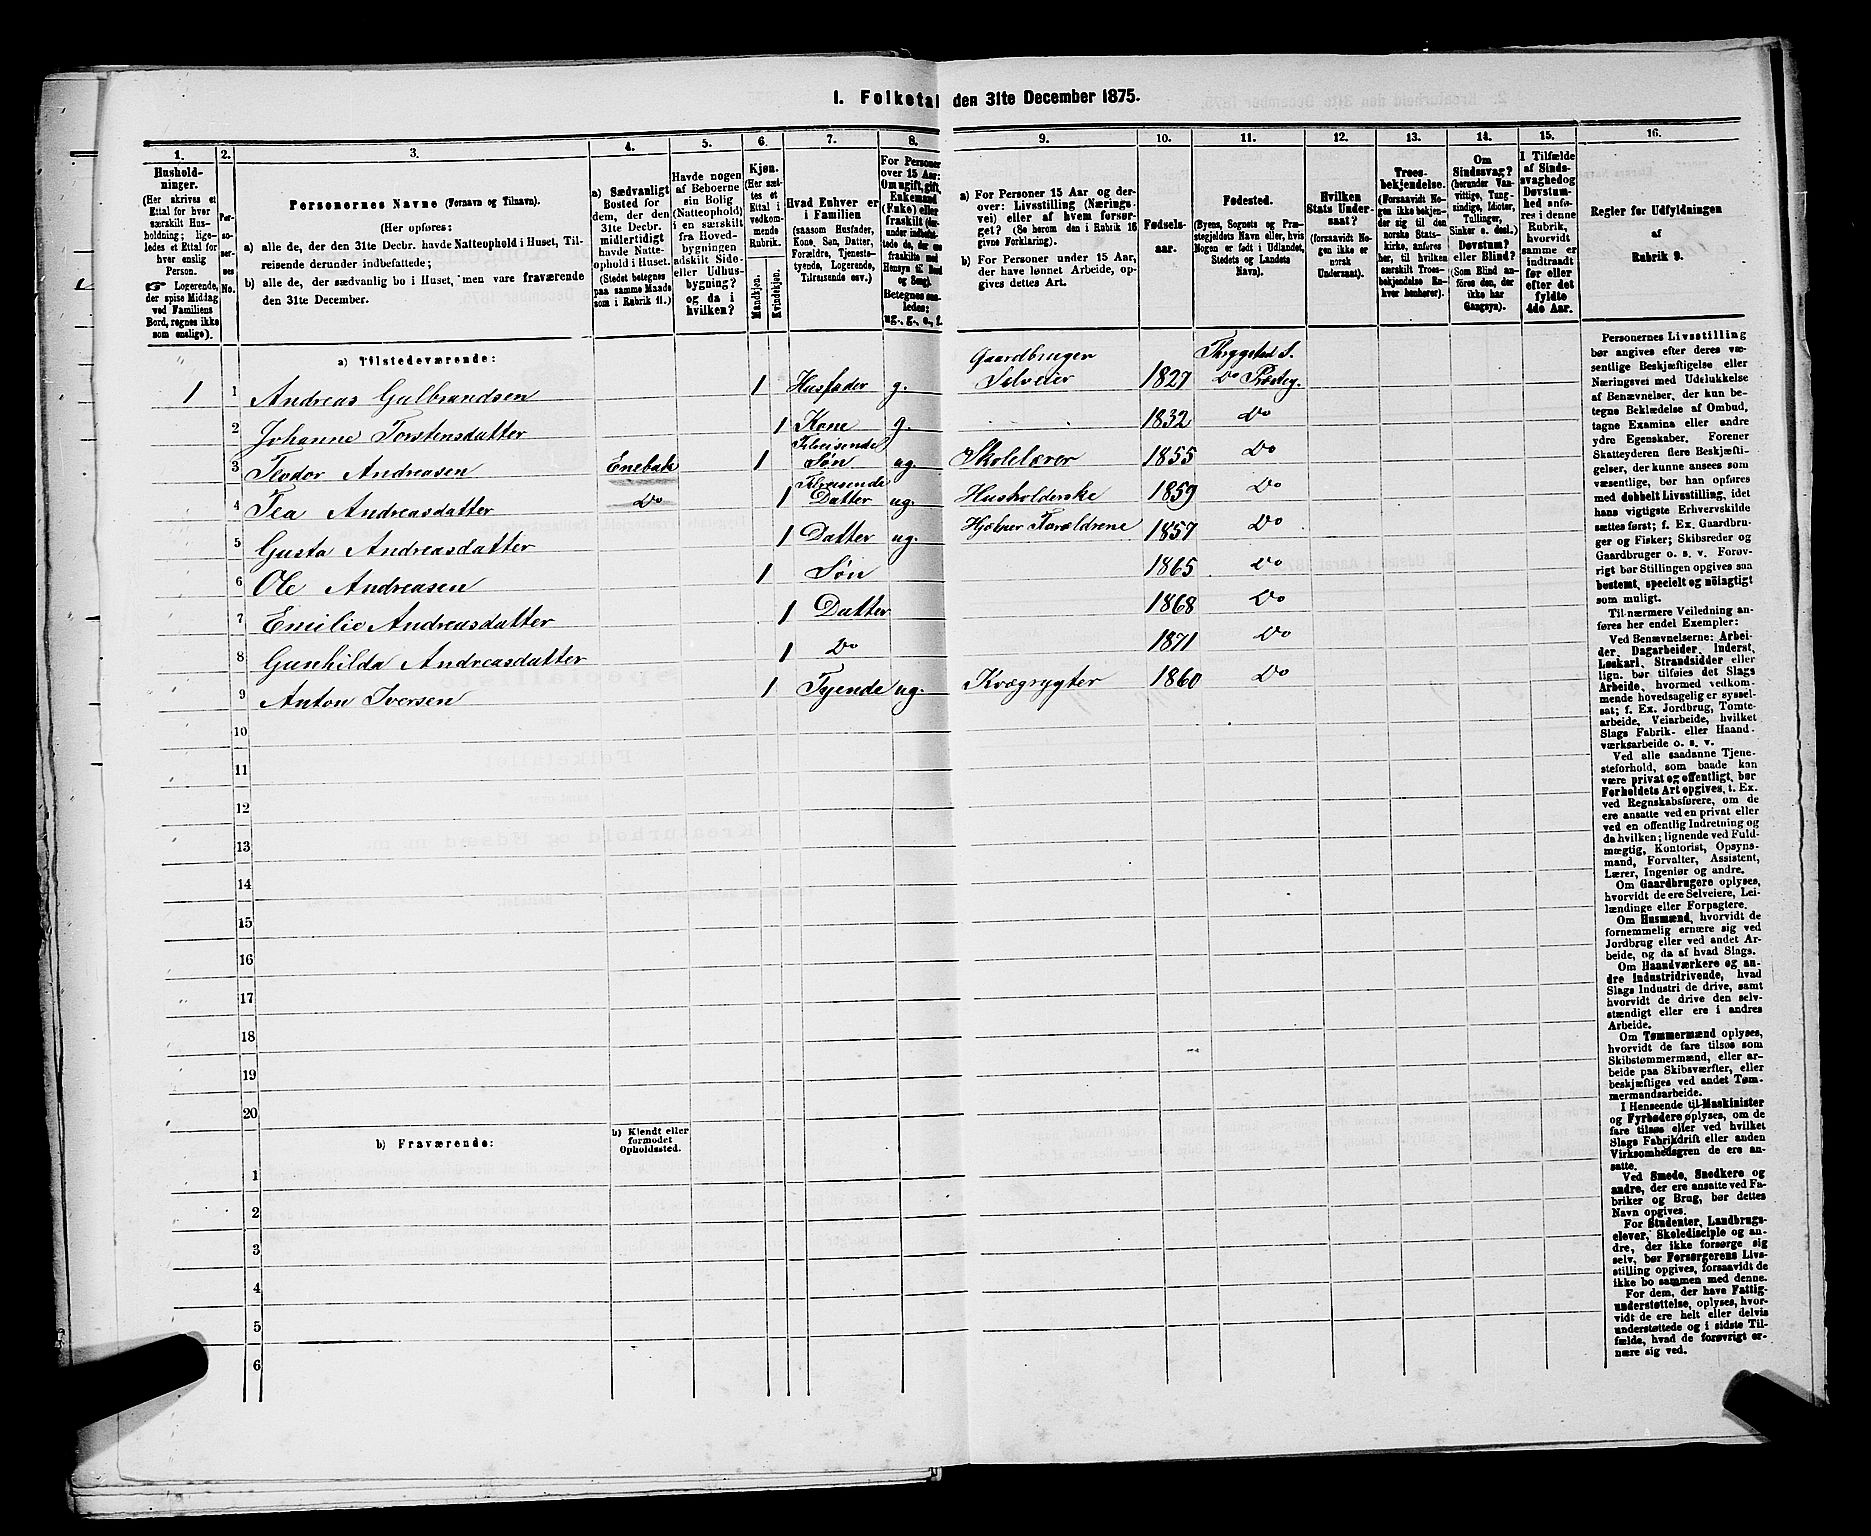 1. Folketal den 31te December 1875.
1.
Hushold-
ninger.
(Her skrives et
Ettal for hver
særskilt Hus-
holdning; lige-
ledes et Ettal for
hver enslig
Person.
☞ Logerende,
der spise Middag
ved Familiens
Bord, regnes ikke
som enslige).
2.
Per-
so-
ner-
nes
No.
3.
Personernes Navne (Fornavn og Tilnavn).
(Her opføres:
a) alle de, der den 31te Decbr. havde Natteophold i Huset, Til-
reisende derunder indbefattede;
b) alle de, der sædvanlig bo i Huset, men vare fraværende
den 31te December.
4.
a) Sædvanligt
Bosted for
dem, der den
31te Decbr.
midlertidigt
havde Natte-
ophold i Huset.
(Stedet betegnes
paa samme Maade
som i Rubrik 11.)
5.
Havde nogen
af Beboerne
sin Bolig
(Natteophold)
i en særskilt
fra Hoved-
bygningen
adskilt Side-
eller Udhus-
bygning?
og da i
hvilken?
6.
Kjøn.
(Her sæt-
tes et
Ettal i
vedkom-
mende
Rubrik.
Mandkjøn.
Kvindekjøn.
7.
Hvad Enhver er
i Familien
(saasom Husfader,
Kone, Søn, Datter,
Forældre, Tjenest-
tyende, Logerende,
Tilreisende osv.)
8.
For Personer
over 15 Aar:
Om ugift, gift,
Enkemand
(Enke) eller
fraskilt
Betegnes saa-
ledes:
ug., g., e., f.
9.
a) For Personer 15 Aar og der-
over: Livsstilling (Nærings-
vei) eller af hvem forsør-
get? (Se herom den i Rubrik 16
givne Forklaring).
b) For Personer under 15 Aar,
der have lønnet Arbeide, op-
gives dettes Art.
10.
Fødsels-
aar.
11.
Fødested.
(Byens, Sognets og Præ-
stegjeldets Navn eller, hvis
Nogen er født i Udlandet,
Stedets og Landets
Navn).
12.
Hvilken
Stats Under-
saat?
(forsaavidt No-
gen ikke er
norsk
Undersaat).
13.
Troes-
bekjendelse.
(Forsaavidt No-
gen ikke bekjen-
der sig til den
norske Stats-
kirke, anføres
her, til hvilken
særskilt Troes-
bekjendelse En-
hver henhører).
14.
Om
Sindssvag?
(herunder Van-
vittige, Tung-
sindige, Idioter,
Tullinger,
Sinker o. desl.)
Døvstum?
eller Blind?
(Som Blind an-
føres den, der
ikke har
Gangsyn).
15.
I Tilfælde
af Sinds-
svaghed og
Døvstum-
hed anfø-
res i denne
Rubrik,
hvorvidt
samme er
indtraadt
før eller
efter det
fyldte
4de Aar.
16.
Regler for Udfyldningen
af
Rubrik 9.
a) Tilstedeværende:
1 1 Andreas Gulbrandsen 1 Husfader g. Gaardbruger Selveier 1827 Trygstad S. Do Præsteg.
2 Johanne Torstensdatter 1 Kone g. 1832 Do
3 Teodor Andreasen Enebak 1 Tilreisende Søn ug. Skolelærer 1855 Do
4 Tea Andreasdatter Do 1 Tilreisende Datter ug. Husholderske 1859 Do
5 Gusta Andreasdatter 1 Datter ug. Hjelper Forældrene 1857 Do
6 Ole Andreasen 1 Søn 1865 Do
7 Emilie Andreasdatter 1 Datter 1868 Do
8 Gunhilda Andreasdatter 1 Do 1871 Do
9 Anton Iversen 1 Tyende ug. Kvægrygter 1860 Do
10
11
12
13
14
15
16
17
18
19
20
b) Fraværende:
b) Kjendt eller
formodet
Opholdssted.
1
2
3
4
5
6
Personernes Livsstilling
bør angives efter deres væ-
sentlige Beskjæftigelse eller
Næringsvei med Udelukkelse
af Benævnelser, der kun be-
tegne Beklædelse af Ombud,
tagne Examina eller andre
ydre Egenskaber. Forener
Skatteyderen flere Beskjæfti-
gelser, der kunne ansees som
væsentlige, bør han opføres
med dobbelt Livsstilling, idet
hans vigtigste Erhvervskilde
sættes først; f. Ex. Gaardbru-
ger og Fisker; Skibsreder og
Gaardbruger o. s. v. Forøv-
rigt bør Stillingen opgives saa
bestemt, specielt og nöiagtigt
som muligt.
Til nærmere Veiledning an-
føres her endel Exempler:
Ved Benævnelserne: Arbei-
der, Dagarbeider, Inderst,
Løskarl, Strandsidder eller
lign. bør tilføies det Slags
Arbeide, hvormed vedkom-
mende hovedsagelig er syssel-
sat; f. Ex. Jordbrug, Tomte-
arbeide, Veiarbeide, hvilket
Slags Fabrik- eller Haand-
værksarbeide o. s. v.
Ved alle saadanne Tjene-
steforhold, som baade kan
være privat og offentligt, bør
Forholdets Art opgives, t. Ex.
ved Regnskabsførere, om de
ere ansatte ved en privat eller
ved en offentlig Indretning og
da hvilken; lignende ved Fuld-
mægtig, Kontorist, Opsyns-
mand, Forvalter, Assistent,
Lærer, Ingeniør og andre.
Om Gaardbrugere oplyses,
hvorvidt de ere Selveiere, Lei-
lændinge eller Forpagtere.
Om Husmænd, hvorvidt de
fornemmelig ernære sig ved
Jordbrug eller ved andet Ar-
beide, og da af hvad Slags.
Om Haandværkere og an-
dre Industridrivende, hvad
Slags Industri de drive, samt
hvorvidt de drive den selv-
stændigt eller ere i andres
Arbeide.
Om Tømmermænd oplyses,
hvorvidt de fare tilsøs som
Skibstømmermænd, eller ar-
beide paa Skibsværfter, eller
beskjæftiges ved andet Tøm-
mermandsarbeide.
I Henseende til Maskinister
og Fyrbødere oplyses, om de
fare tilsøs eller ved hvilket
Slags Fabrikdrift eller anden
Virksomhedsgren de ere an-
satte.
Ved Smede, Snedkere og
andre, der ere ansatte ved Fa-
briker og Brug, bør dettes
Navn opgives.
For Studenter, Landbrugs-
elever, Skoledisciple og an-
dre, der ikke forsørge sig
selv, bør Forsørgerens Livs-
stilling opgives, forsaavidt de
ikke bo sammen med denne.
For dem, der have Fattig-
understøttelse, oplyses, hvor-
vidt de ere helt eller delvis
understøttede og i sidste Til-
fælde, hvad de forøvrigt er-
nære sig ved.